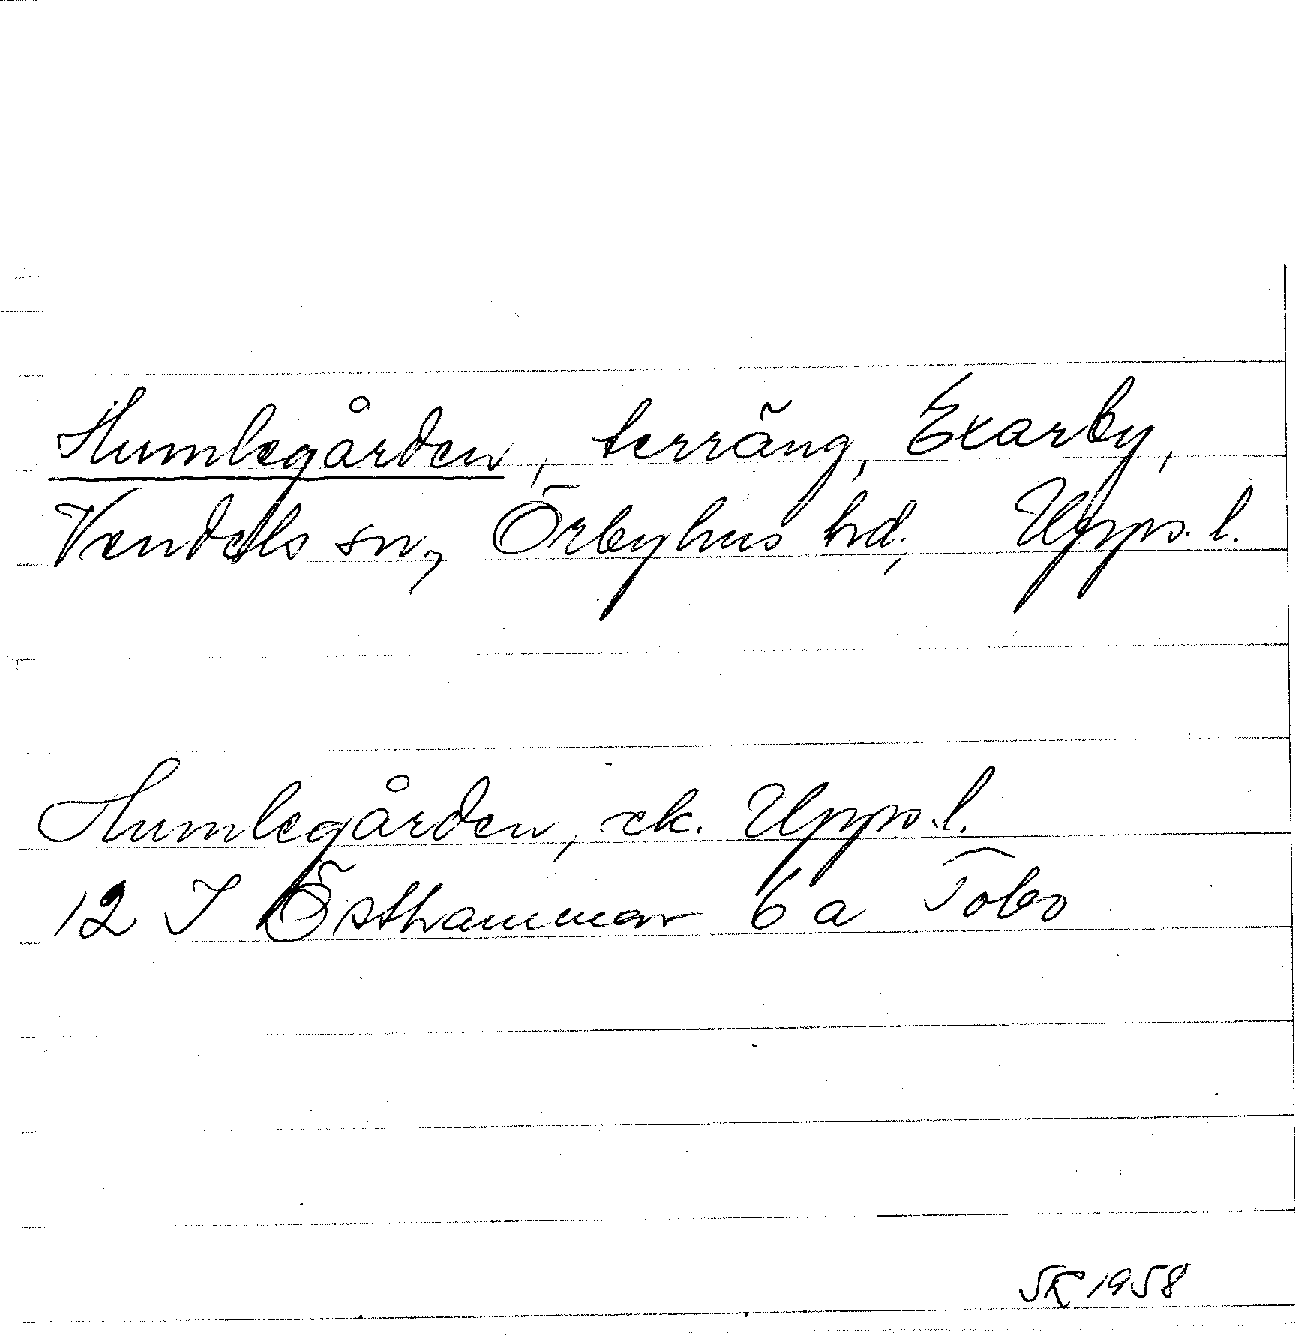 Humlegården, terräng, Exarby,
Vendels sn, Örbyhus hd, Upps. l.
Humlegården, ek. Upps. l.
12 I Östhammar 6 a Tobo
SK 1958